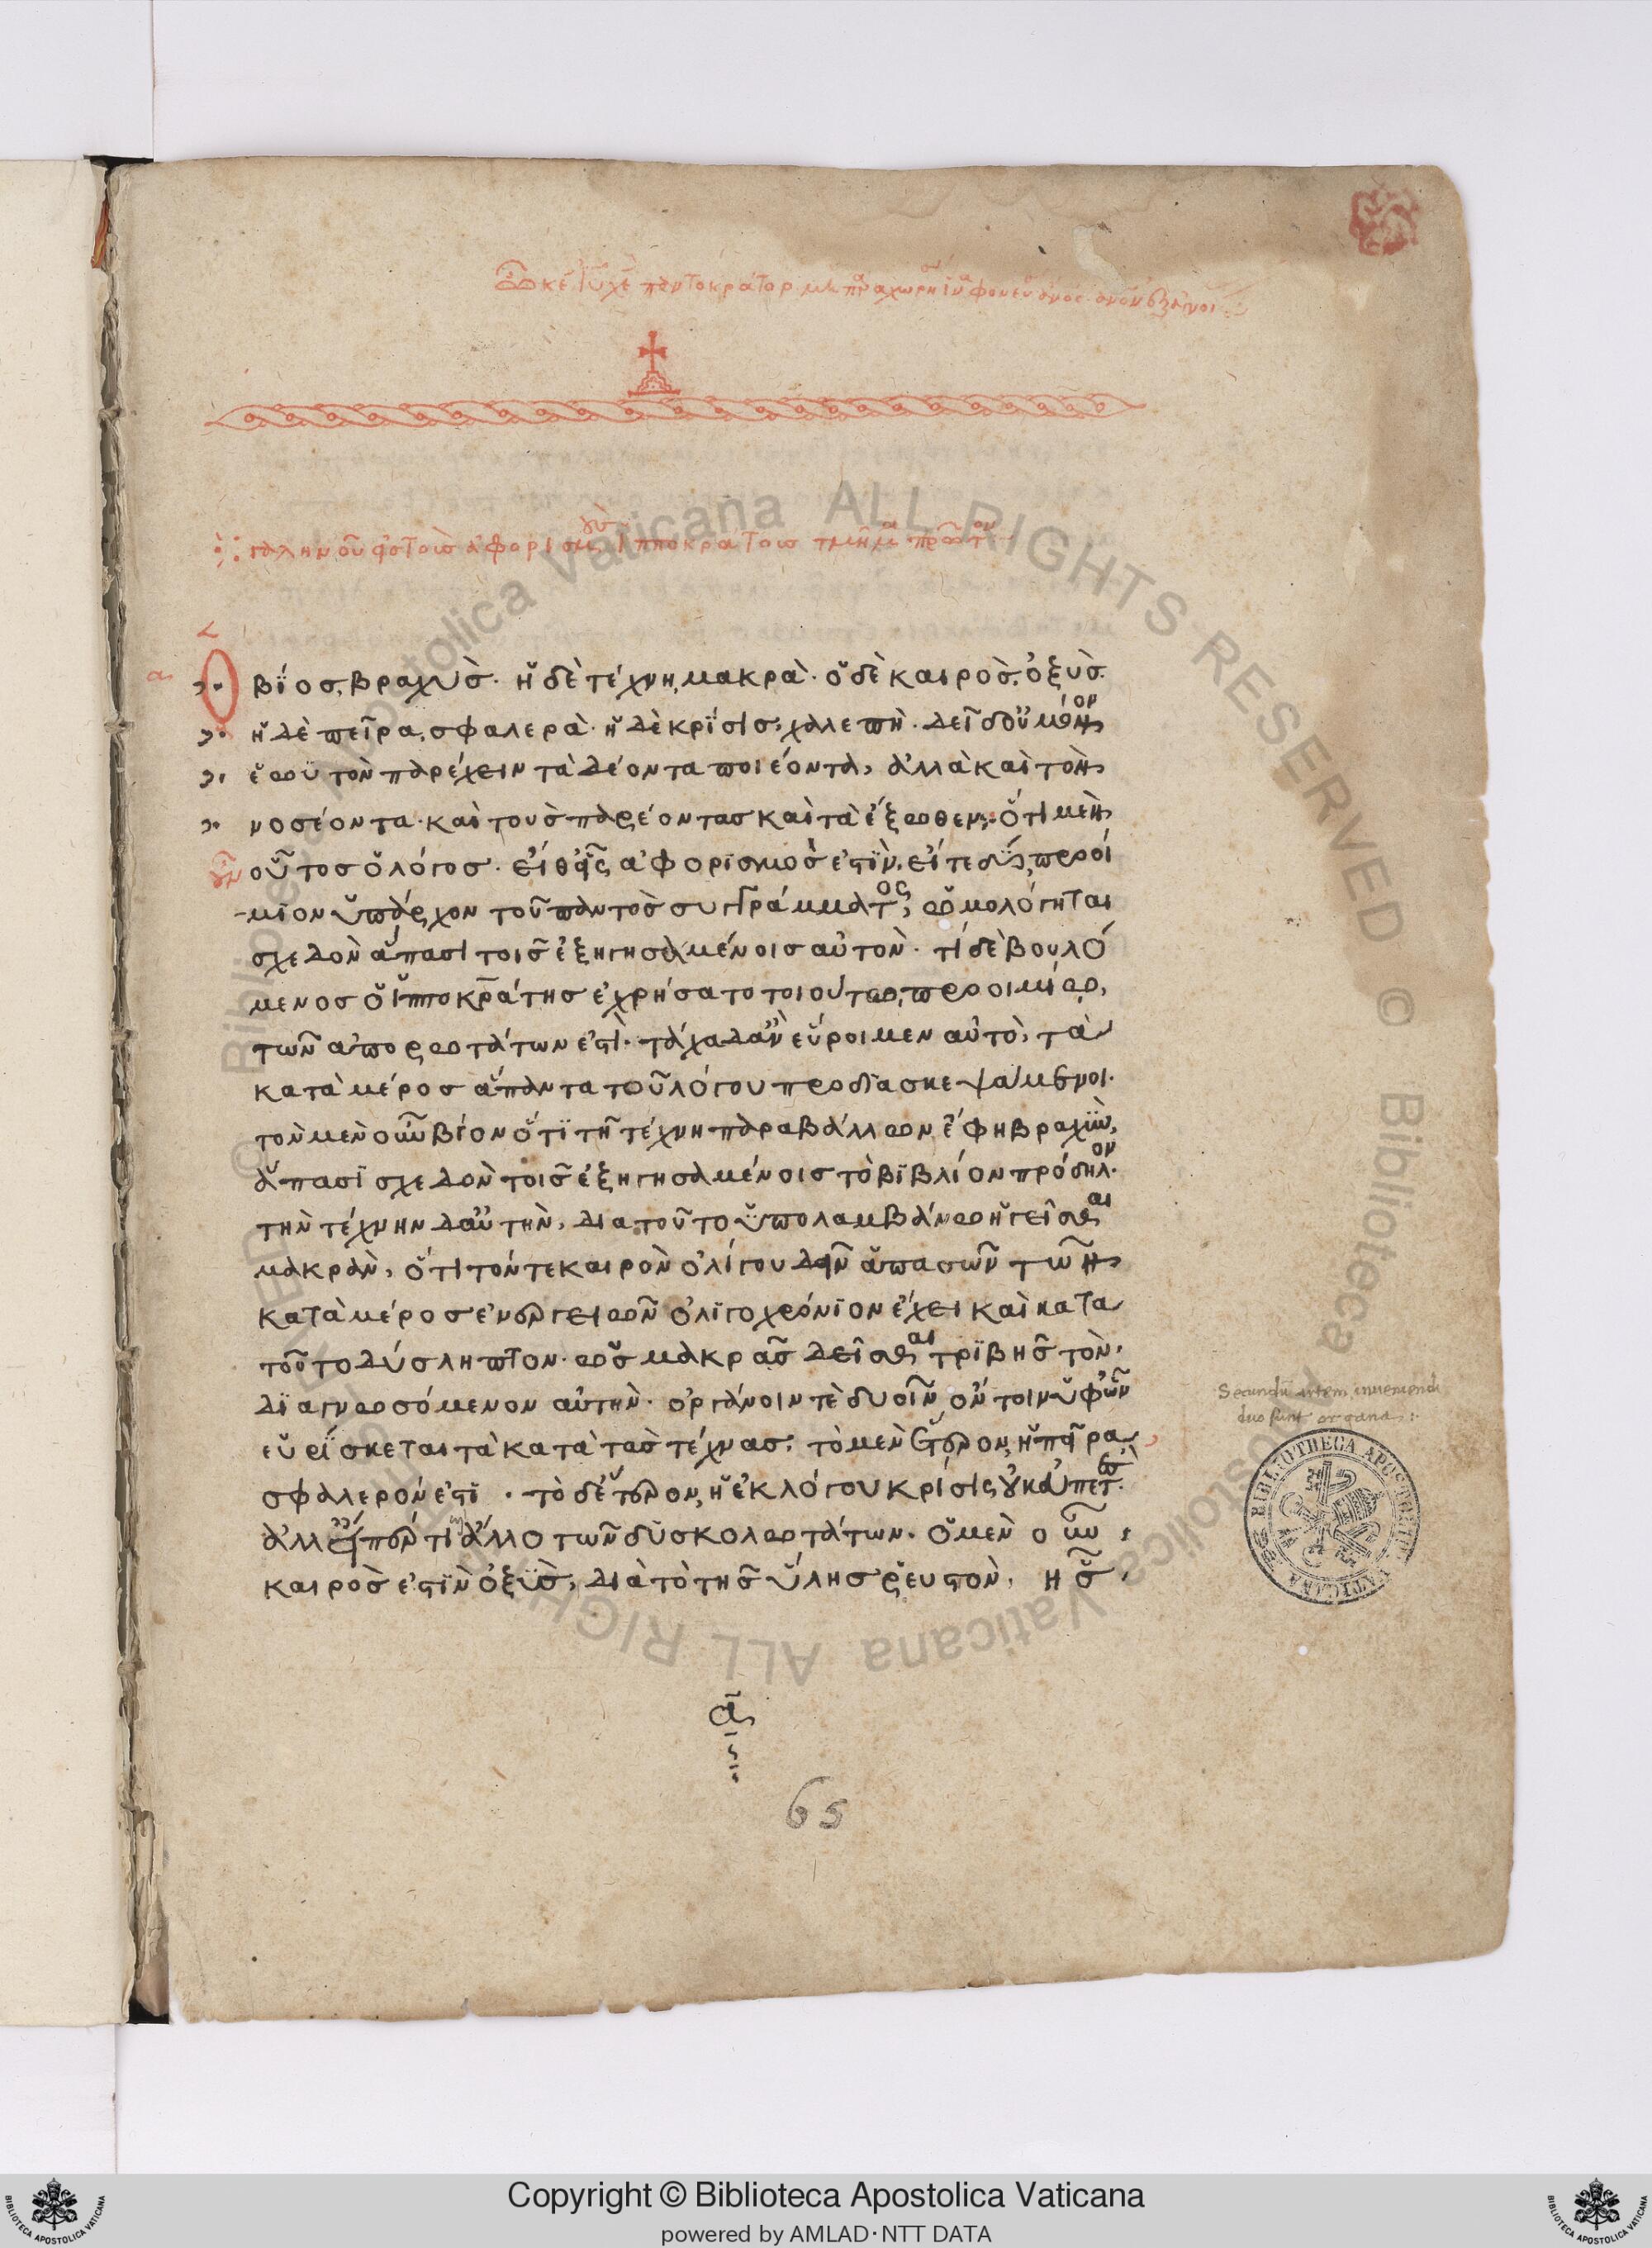 γαληνοῦ εἰς τοὺς ἀφορισμοὺς ἱπποκράτους τμῆμα πρῶτον
Ὁ βίος, βραχὺς· ἡ δὲ τέχνη, μακρὰ· ὁ δὲ καιρὸς, ὀξὺς.
ἡ δὲ πεῖρα, σφαλερὰ· ἡ δὲ κρίσις, χαλεπὴ· δεῖ δ οὐ μόνον
ἑωυτὸν παρέχειν τὰ δέοντα ποιέοντα, ἀλλὰ καὶ τὸν
νοσέοντα· καὶ τοὺς παρεόντας καὶ τὰ ἔξωθεν· ὅτι μὲν
οὖν οὗτος ὁ λόγος· εἴθ εἷς ἀφορισμὸς ἐστὶν, εἴτε δύο, προοί
μιον ὑπάρχον τοῦ παντὸς συγγράμματος, ὡμολόγηται
σχεδὸν ἅπασι τοῖς ἐξηγησαμένοις αὐτὸν· τί δὲ βουλό
μενος ὁ ἱπποκράτης ἐχρήσατο τοιούτω, προοιμίω,
τῶν ἀπορωτάτων ἐστὶ· τάχα δ ἂν εὕροιμεν αὐτὸ, τὰ
κατὰ μέρος ἅπαντα τοῦ λόγου προδιασκεψάμενοι·
τὸν μὲν οὖν βίον ὅτι τῆ τέχνη παραβάλλων ἔφη βραχὺν,
ἅπασι σχεδὸν τοῖς ἐξηγησαμένοις τὸ βιβλίον πρόδηλον·
τὴν τέχνην δ αὐτὴν, δια τοῦτο ὑπολαμβάνω ἡγεῖσθαι
μακρὰν, ὅτι τόν τε καιρὸν ὀλίγου δεῖν ἁπασῶν τῶν
κατὰ μέρος ἐνεργειῶν ὀλιγοχρόνιον ἔχει καὶ κατα
τοῦτο δύσληπτον· ὡς μακρᾶς δεῖσθαι τριβῆς τὸν
διαγνωσόμενον αὐτὴν· ὀργάνοιν τὲ δυοῖν ὄντοιν ὑφ ὧν
εὑρίσκεται τὰ κατὰ τὰς τέχνας· τὸ μὲν ἕτερον, ἡ πεῖρα
σφαλερόν ἐστι · τὸ δ ἕτερον, ἡ ἐκ λόγου κρίσις οὐκ εὐπετὲς·
ἀλλ εἴπερ τι ἄλλο τῶν δυσκολωτάτων· ὁ μὲν οὖν
καιρὸς ἐστὶν ὀξὺς, διὰ τὸ τῆς ὕλης ῥευστὸν, ἧς
α
65
Secundum artem inueniendi
duo sunt organa:
BIBLIOTHECA APOSTOLICA VATICANA
© Biblioteca Apostolica Vaticana ALL RIGHTS RESERVED
Copyright © Biblioteca Apostolica Vaticana
powered by AMLAD・NTT DATA